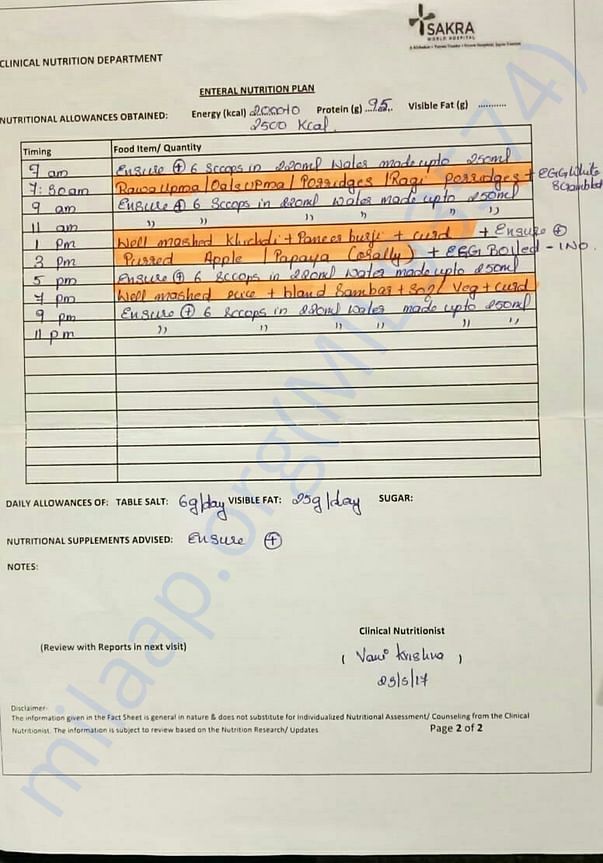 SAKRA
WORLD HOSPITAL
CLINICAL NUTRITION DEPARTMENT
ENTERAL NUTRITION PLAN
NUTRITIONAL ALLOWANCES OBTAINED: Energy (kcal) 2000to Protein (g) 95 Visible Fat (g) ...........
2500 Kcal
Timing Food Item/ Quantity
7 am Ensure + 6 Sccops in 220ml Water made upto 250ml
7:30am Rawa upma / Oats upma / Porridges / Ragi porridges + EGG White
Scrambled
9 am Ensure + 6 Sccops in 220ml Water made upto 250ml
11 am " " " " " "
1 pm Well mashed Khichdi + Paneer burji + curd + Ensure +
3 pm Pureed Apple / Papaya (orally) + EGG Boiled - 1NO.
5 pm Ensure + 6 Sccops in 220ml Water made upto 250ml
7 pm Well mashed rice + bland Sambar + Veg + curd
9 pm Ensure + 6 Sccops in 220ml Water made upto 250ml
11 pm " " " " " "
DAILY ALLOWANCES OF: TABLE SALT: 6g/day VISIBLE FAT: 25g/day SUGAR:
NUTRITIONAL SUPPLEMENTS ADVISED: Ensure +
NOTES:
Clinical Nutritionist
(Review with Reports in next visit) ( Vani Krishna )
29/5/17
Disclaimer-
The information given in the Fact Sheet is general in nature & does not substitute for Individualized Nutritional Assessment/ Counseling from the Clinical
Nutritionist. The information is subject to review based on the Nutrition Research/ Updates Page 2 of 2